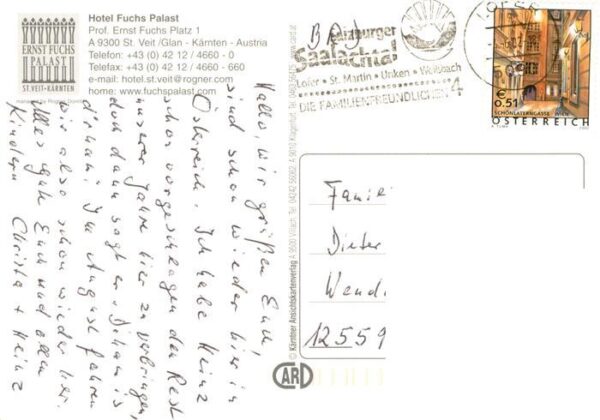 Hotel Fuchs Palast
Prof. Ernst Fuchs Platz 1
A 9300 St. Veit /Glan - Kärnten - Austria
Telefon: +43 (0) 42 12 / 4660 - 0
Telefax: +43 (0) 42 12 / 4660 - 660
e-mail: hotel.st.veit@rogner.com
home: www.fuchspalast.com
ERNST FUCHS
PALAST
ST. VEIT · KÄRNTEN
Hallo, wir grüßen Euch,
sind schon wieder hier in
Österreich. Ich habe Heinz
schon vorgeschlagen den Rest
unserer Jahre hier zu verbringen,
doch dann sagt er, Diham is
d'rham! Im August fahren
wir also schon wieder her.
Alles gute Euch und allen
Kindern Christa + Heinz
Salzburger
Saalachtal
Lofer · St. Martin · Unken · Weißbach
DIE FAMILIENFREUNDLICHEN 4
LOFER
€ 0,51
SCHÖNLATERNGASSE WIEN
ÖSTERREICH
© Kärntner Ansichtskartenverlag A 9500 Villach
CARD
Dieter
Wend
12559